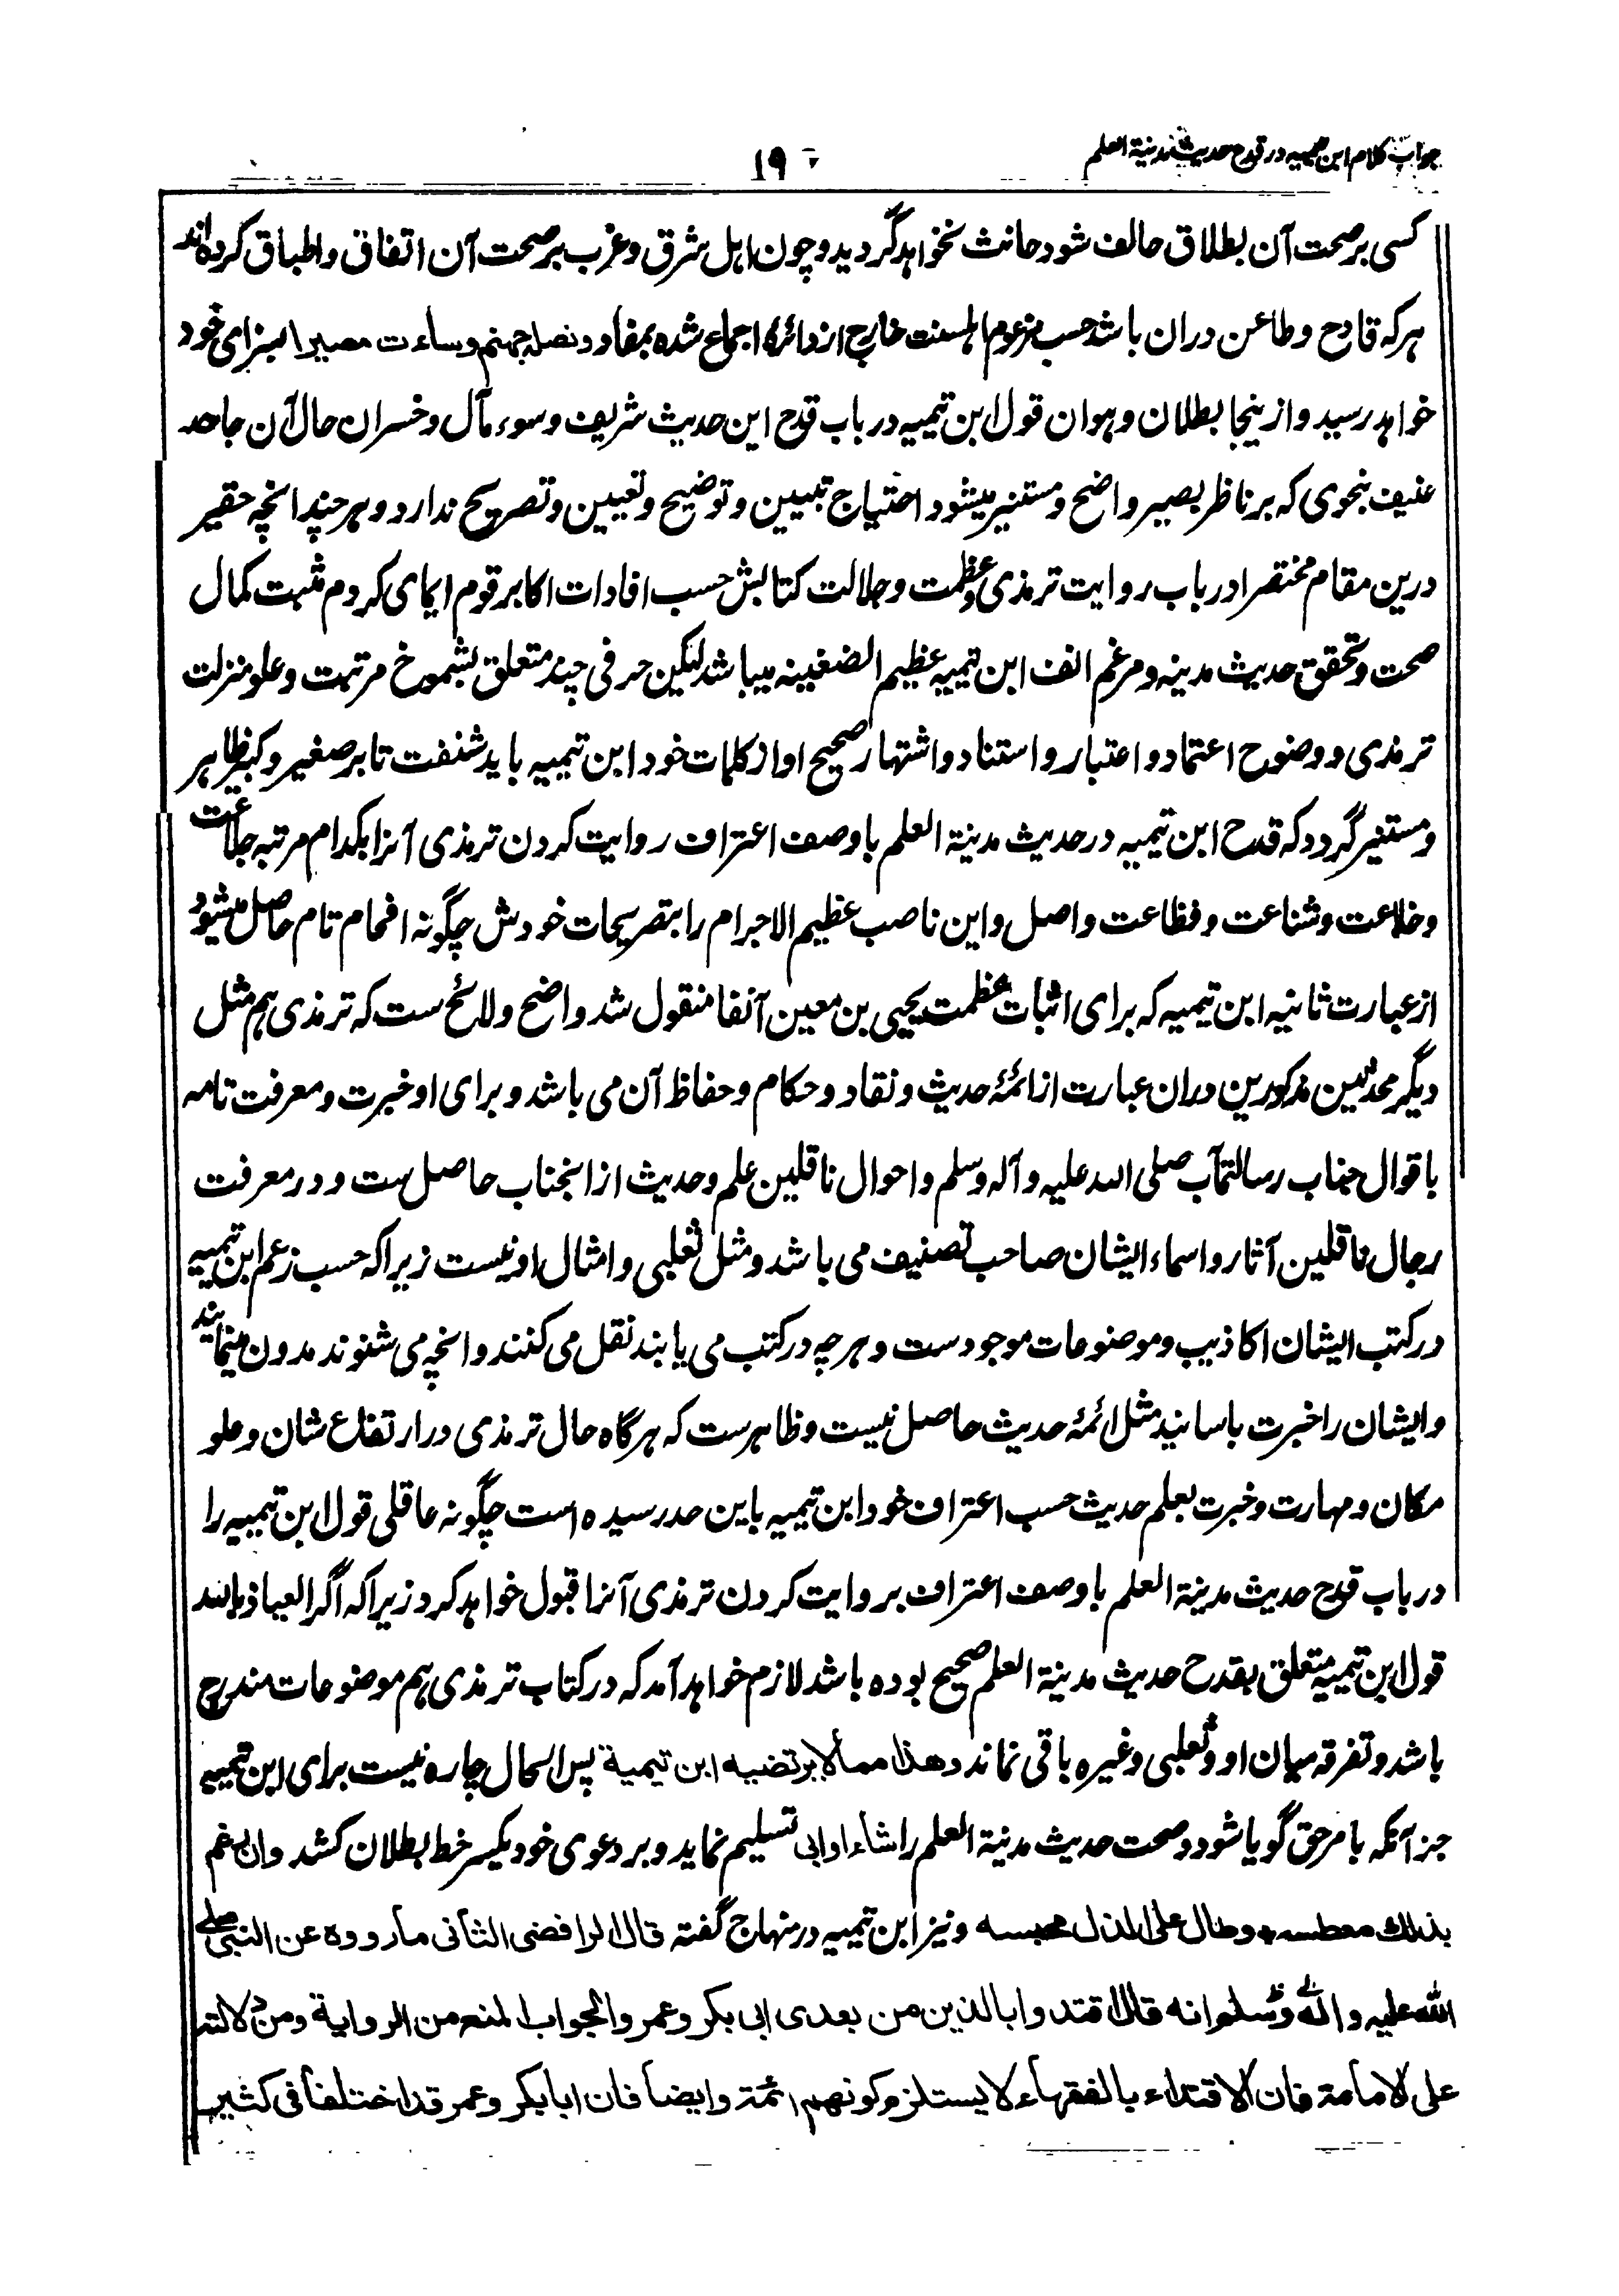 جواب کلام ابن تیمیه در قدح حدیث مدینة العلم
۱۹
کسی بر صحت آن بطلاق حالف شود حانث نخواهد گردید و چون اهل شرق و غرب بر صحت آن اتفاق و اطباق کرده‌اند
هر که قادح و طاعن دران باشد حسب مزعوم اهلسنت خارج از دائرهٔ اجماع شده بمفاد و نصله جهنم و ساءت مصیرا بسزای خود
خواهد رسید و از ینجا بطلان و هوان قول ابن تیمیه در باب قدح این حدیث شریف و سوء مآل و خسران حال آن جاحد
عنیف بنحوی که بر ناظر بصیر واضح و مستنیر میشود احتیاج تبیین و توضیح و تعیین و تصریح ندارد و هر چند انچه حقیر
درین مقام مختصرا در باب روایت ترمذی و عظمت و جلالت کتابش حسب افادات اکابر قوم ایمای کردم مثبت کمال
صحت و تحقق حدیث مدینه و مرغم انف ابن تیمیه عظیم الضغینه میباشد لیکن حرفی چند متعلق بشموخ مرتبت و علو منزلت
ترمذی و وضوح اعتماد و اعتبار و استناد و اشتهار صحیح او از کلمات خود ابن تیمیه باید شنفت تا بر صغیر و کبیر ظاهر
و مستنیر گردد که قدح ابن تیمیه در حدیث مدینة العلم با وصف اعتراف روایت کردن ترمذی آنرا بکدام مرتبه جلاعت
و خلاعت و شناعت و فظاعت واصل و این ناصب عظیم الاجرام را بتصریحات خودش چگونه افحام تام حاصل میشود
از عبارت ثانیه ابن تیمیه که برای اثبات عظمت یحیی بن معین آنفا منقول شد واضح و لائح ست که ترمذی هم مثل
دیگر محدثین مذکورین دران عبارت از ائمهٔ حدیث و نقاد و حکام و حفاظ آن می باشد و برای او خبرت و معرفت تامه
باقوال جناب رسالتمآب صلی الله علیه و آله و سلم و احوال ناقلین علم و حدیث از انجناب حاصل ست و در معرفت
رجال ناقلین آثار و اسماء ایشان صاحب تصنیف می باشد و مثل ثعلبی و امثال او نیست زیرا که حسب زعم ابن تیمیه
در کتب ایشان اکاذیب و موضوعات موجود ست و هر چه در کتب می یابند نقل می کنند و انچه می شنوند مدون مینمایند
و ایشان را خبرت باسانید مثل ائمهٔ حدیث حاصل نیست و ظاهرست که هر گاه حال ترمذی در ارتفاع شان و علو
مکان و مهارت و خبرت بعلم حدیث حسب اعتراف خود ابن تیمیه باین حد رسیده است چگونه عاقلی قول ابن تیمیه را
در باب قدح حدیث مدینة العلم با وصف اعتراف بروایت کردن ترمذی آنرا قبول خواهد کرد زیرا که اگر العیاذ بالله
قول ابن تیمیه متعلق بقدح حدیث مدینة العلم صحیح بوده باشد لازم خواهد آمد که در کتاب ترمذی هم موضوعات مندرج
باشد و تفرقه میان او و ثعلبی و غیره باقی نماند وهذا مما لا یرتضیه ابن تیمیة پس الحال چاره نیست برای ابن تیمیه
جز آنکه بامر حق گویا شود و صحت حدیث مدینة العلم را شاء او ابی تسلیم نماید و بر دعوی خود یکسر خط بطلان کشد وان رغم
بذلك معطسه وطال علی الذل محبسه و نیز ابن تیمیه در منهاج گفته قال الرافضی الثانی ما رووه عن النبی صلے
الله علیه واله وسلم انه قال اقتدوا بالذین من بعدی ابی بکر وعمر والجواب المنع من الروایة ومن دلالتها
علی الامامة فان الاقتداء بالفقهاء لا یستلزم کونهم ائمة وایضا فان ابا بکر وعمر قد اختلفا فی کثیر